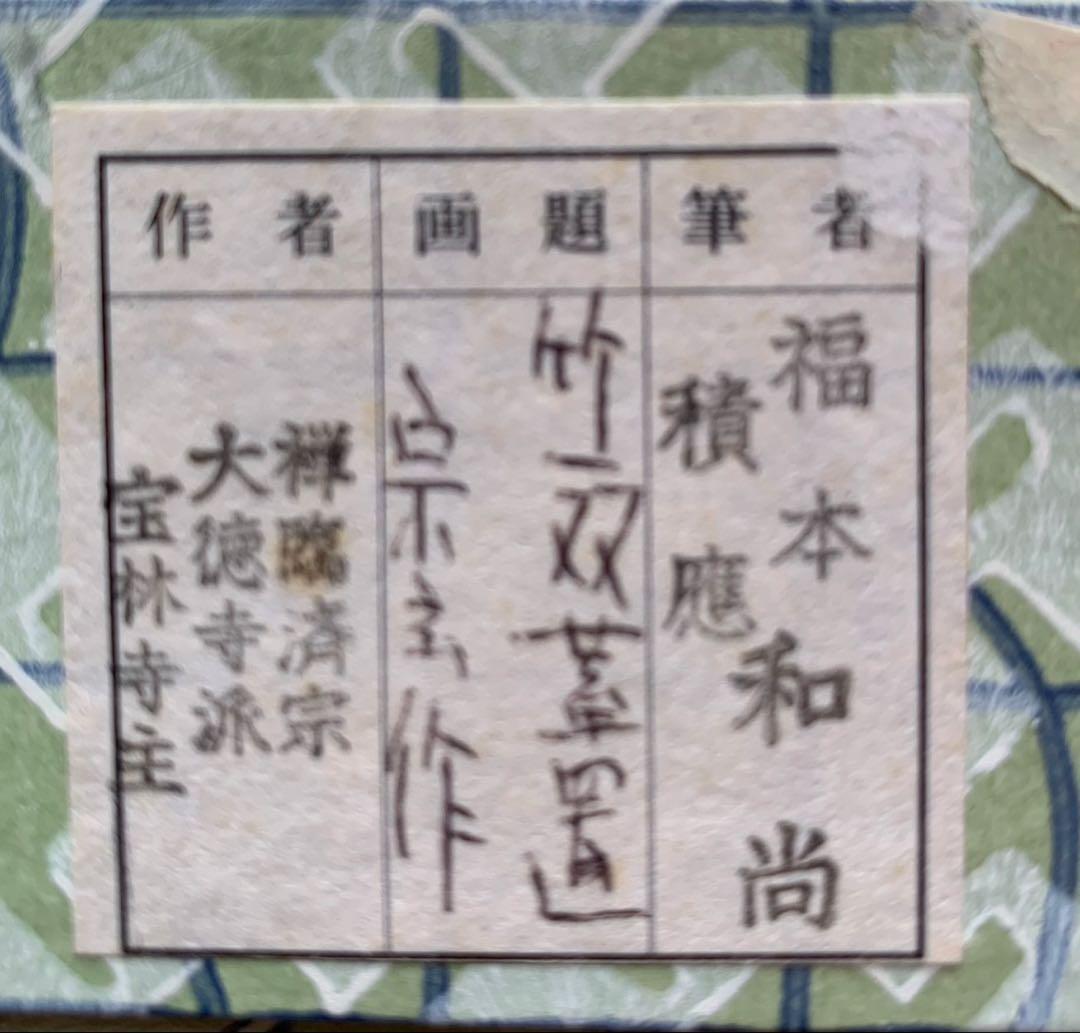 筆者
福本
積應
和尚
画題
竹一双蓋置
宗玄作
作者
禅臨済宗
大徳寺派
宝林寺主